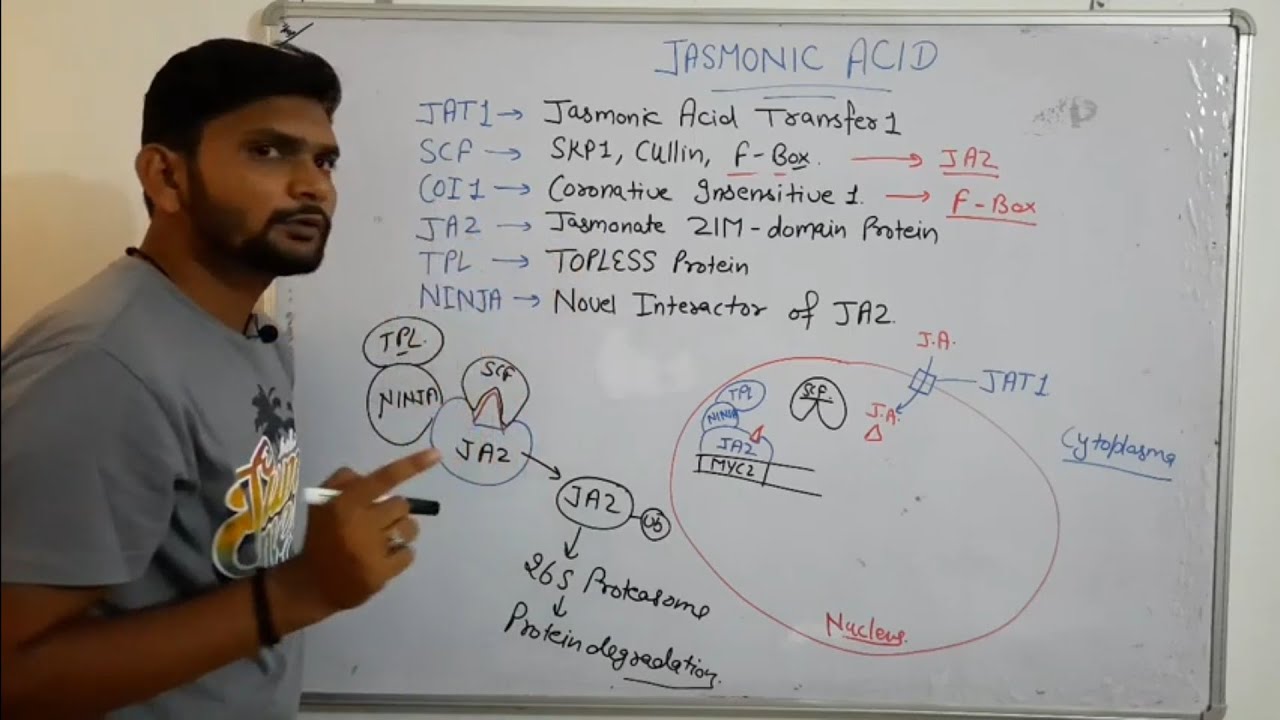 JASMONIC ACID
JAT1 → Jasmonic Acid Transfer1
SCF → SKP1, Cullin, F-Box. → JAZ
COI1 → Coronative Insensitive 1. → F-Box
JAZ → Jasmonate ZIM-domain Protein
TPL → TOPLESS Protein
NINJA → Novel Interactor of JAZ.
TPL.
NINJA
SCF
JAZ
JAZ
Ub
26S Proteasome
Protein degradation.
J.A.
JAT1
J.A.
SCF
TPL
NINJA
JAZ
MYC2
Cytoplasma
Nucleus.